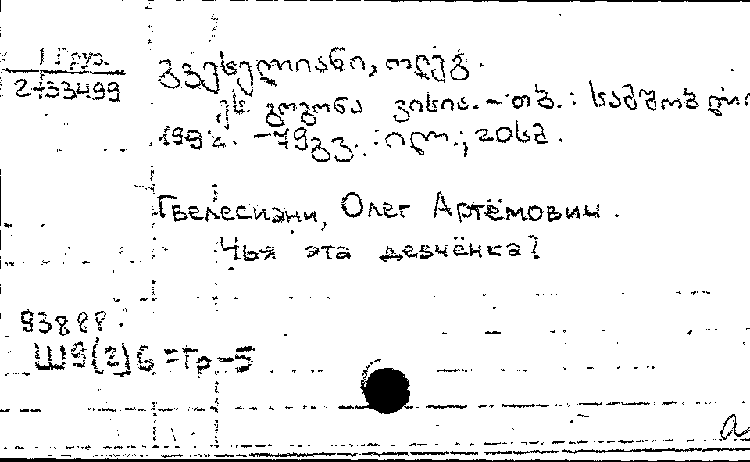 1 Груз.
2-33499
გველესიანი, ოლეგ.
ეს გოგონა ვისია. – თბ. :
199 . – 79 გვ. : ილ. ; 20 სმ.
Гвелесиани, Олег Артёмович.
Чья эта девчёнка?
93888.
Ш9(2)6=Гр-5
а